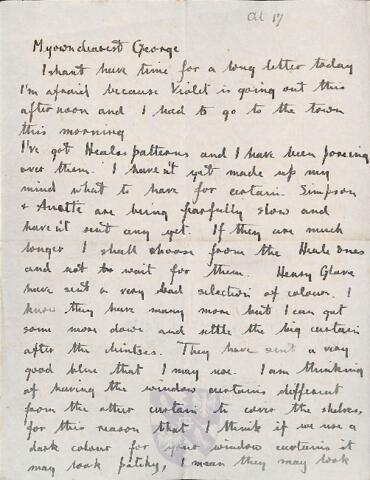 al 17
My own dearest George
I shan't have time for a long letter today
I'm afraid because Violet is going out this
afternoon and I had to go to the town
this morning
I've got Heales patterns and I have been poreing
over them. I haven't yet made up my
mind what to have for certain. Simpson
& are being fearfully slow and
have'nt sent any yet. If they are much
longer I shall choose from the Heale ones
and not to wait for them. Henry Glave
have sent a very bad selection of colour. I
know they have many more but I can get
some more down and settle the big curtain
after the chintses. They have sent a very
good blue that I may use. I am thinking
of having the window curtains different
from the other curtain to cover the shelves,
for this reason that I think if we use a
dark colour for your window curtains it
may look patchy, I mean they may look